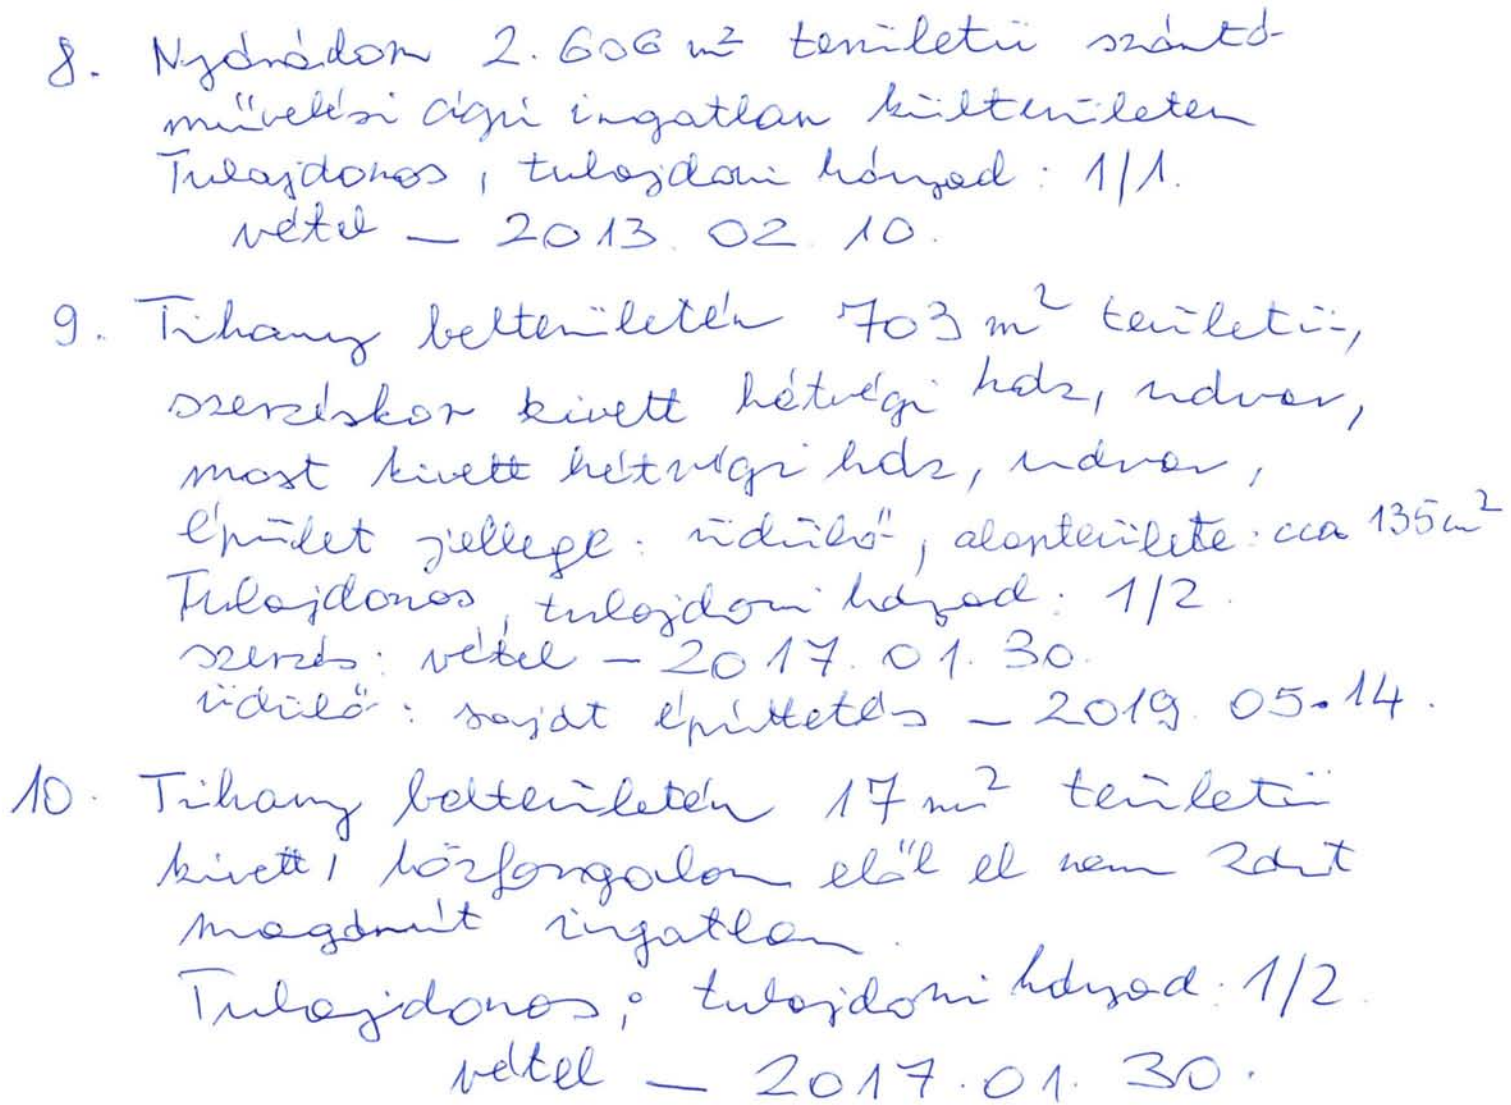 8. Nyárádon 2.606 m² területű szántó-
művelési ágú ingatlan külterületen
Tulajdonos, tulajdoni hányad: 1/1.
vétel – 2013. 02. 10.
9. Tihany belterületén 703 m² területű,
szerzéskor kivett hétvégi ház, udvar,
most kivett hétvégi ház, udvar,
épület jellege: üdülő, alapterülete: cca 135 m²
Tulajdonos, tulajdoni hányad: 1/2.
szerzés: vétel – 2017. 01. 30.
üdülő: saját építtetés – 2019. 05. 14.
10. Tihany belterületén 17 m² területű
kivett, közforgalom elől el nem zárt
magánút ingatlan.
Tulajdonos; tulajdoni hányad: 1/2.
vétel – 2017. 01. 30.